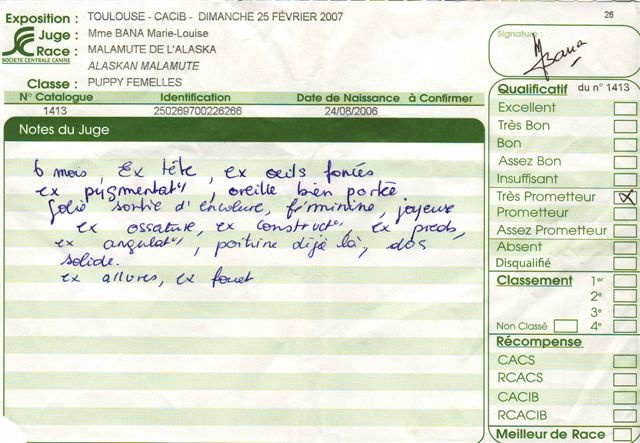 Exposition : TOULOUSE - CACIB - DIMANCHE 25 FÉVRIER 2007
26
Juge : Mme BANA Marie-Louise
Race : MALAMUTE DE L'ALASKA
SOCIETE CENTRALE CANINE
ALASKAN MALAMUTE
Classe : PUPPY FEMELLES
Signature :
MBana
N° Catalogue Identification Date de Naissance à Confirmer
1413 250269700226266 24/08/2006
Notes du Juge
6 mois, Ex tête, ex oeils foncés
ex pygmentatn, oreille bien portée
Jolie sortie d'encolure, féminine, joyeuse
ex ossature, ex constructn, ex pieds,
ex angulatn, poitrine déjà là, dos
solide.
ex allures, ex fouet
Qualificatif du n° 1413
Excellent
Très Bon
Bon
Assez Bon
Insuffisant
Très Prometteur X
Prometteur
Assez Prometteur
Absent
Disqualifié
Classement 1er
2e
3e
Non Classé 4e
Récompense
CACS
RCACS
CACIB
RCACIB
Meilleur de Race